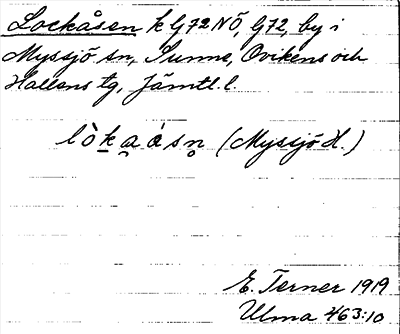 Lockåsen k G72NÖ, G72, by i
Myssjö sn, Sunne, Ovikens och
Hallens tg, Jämtl. l.
lò̀kaásn (Myssjö H.)
E. Terner 1919
Ulma 463:10